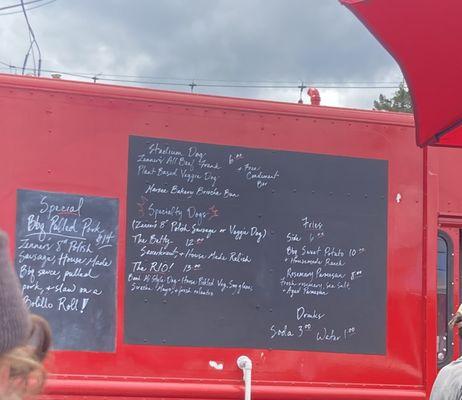 Special
BBQ Pulled Pork
$14
Zenner's 8" Polish
Sausage, House Made
BBQ sauce, pulled
pork, & slaw on a
Bolillo Roll!
Stadium Dog 6.00
Zenner's All Beef Frank
Plant Based Veggie Dog
+ Free
Condiment
Bar
Bakery Brioche Bun
Specialty Dogs
(Zenner's 8" Polish Sausage or Veggie Dog)
The Betty 12.00
Sauerkraut + House Made Relish
The RIO! 13.00
Style Dog - House Pickled Veg,
Sriracha Mayo, + fresh cilantro
Fries
Side 6.00
BBQ Sweet Potato 10.00
+ Housemade Ranch
Rosemary Parmesan 8.00
fresh rosemary, sea salt,
+ Aged Parmesan
Drinks
Soda 3.00 Water 1.00